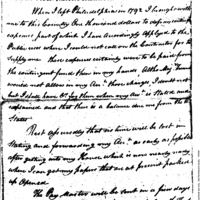 When I left Philadelphia in 1792 I brought
one to this Country One thousand dollars to defray certain
expences part of which I have Accordingly Applyed to the
Publick use when I could not call on the Contractor for the
Supply one these expences certainly were to be paid from
the contingent fund then in my hands Altho Mr
would not allow in my Acct these charges I doubt not
but I shall have by him when my Acct is Stated
examined and that there is a balance due me from the U
States
Rest assured that no time will be lost in
Stating and forwarding my Acct as early as possible
after getting into my House which is now nearly ready
when I can get my papers that are at present packed
up Opened
The Pay Master will be sent in a few days